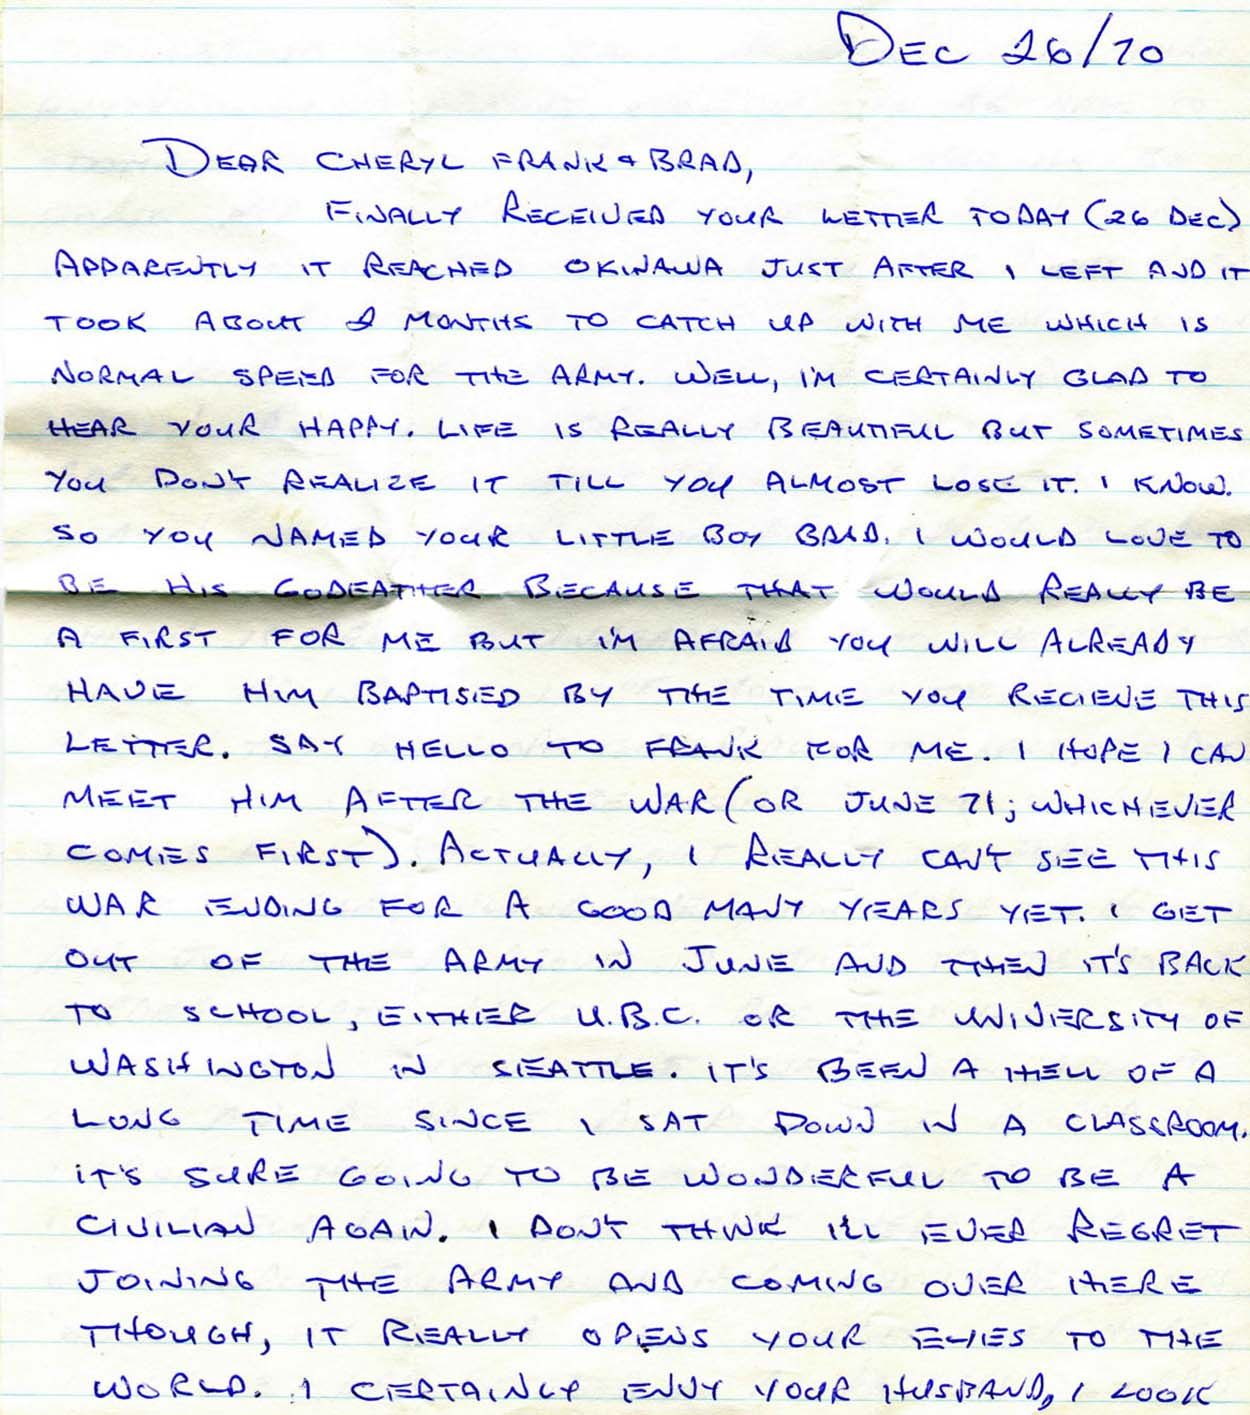 DEC 26/70
DEAR CHERYL FRANK & BRAD,
FINALLY RECEIVED YOUR LETTER TODAY (26 DEC)
APPARENTLY IT REACHED OKINAWA JUST AFTER I LEFT AND IT
TOOK ABOUT 2 MONTHS TO CATCH UP WITH ME WHICH IS
NORMAL SPEED FOR THE ARMY. WELL, I'M CERTAINLY GLAD TO
HEAR YOUR HAPPY. LIFE IS REALLY BEAUTIFUL BUT SOMETIMES
YOU DON'T REALIZE IT TILL YOU ALMOST LOSE IT. I KNOW.
SO YOU NAMED YOUR LITTLE BOY BRAD. I WOULD LOVE TO
BE HIS GODFATHER BECAUSE THAT WOULD REALLY BE
A FIRST FOR ME BUT I'M AFRAID YOU WILL ALREADY
HAVE HIM BAPTISED BY THE TIME YOU RECIEVE THIS
LETTER. SAY HELLO TO FRANK FOR ME. I HOPE I CAN
MEET HIM AFTER THE WAR (OR JUNE 71; WHICHEVER
COMES FIRST). ACTUALLY, I REALLY CAN'T SEE THIS
WAR ENDING FOR A GOOD MANY YEARS YET. I GET
OUT OF THE ARMY IN JUNE AND THEN IT'S BACK
TO SCHOOL, EITHER U.B.C. OR THE UNIVERSITY OF
WASHINGTON IN SEATTLE. IT'S BEEN A HELL OF A
LONG TIME SINCE I SAT DOWN IN A CLASSROOM.
IT'S SURE GOING TO BE WONDERFUL TO BE A
CIVILIAN AGAIN. I DON'T THINK I'LL EVER REGRET
JOINING THE ARMY AND COMING OVER HERE
THOUGH, IT REALLY OPENS YOUR EYES TO THE
WORLD. I CERTAINLY ENVY YOUR HUSBAND, I LOOK